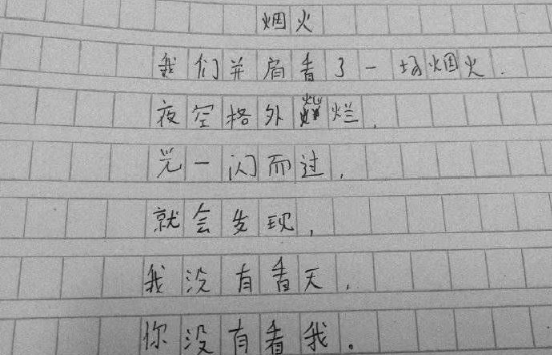 烟火
我们并肩看了一场烟火.
夜空格外灿烂,
光一闪而过,
就会发现,
我没有看天,
你没有看我。